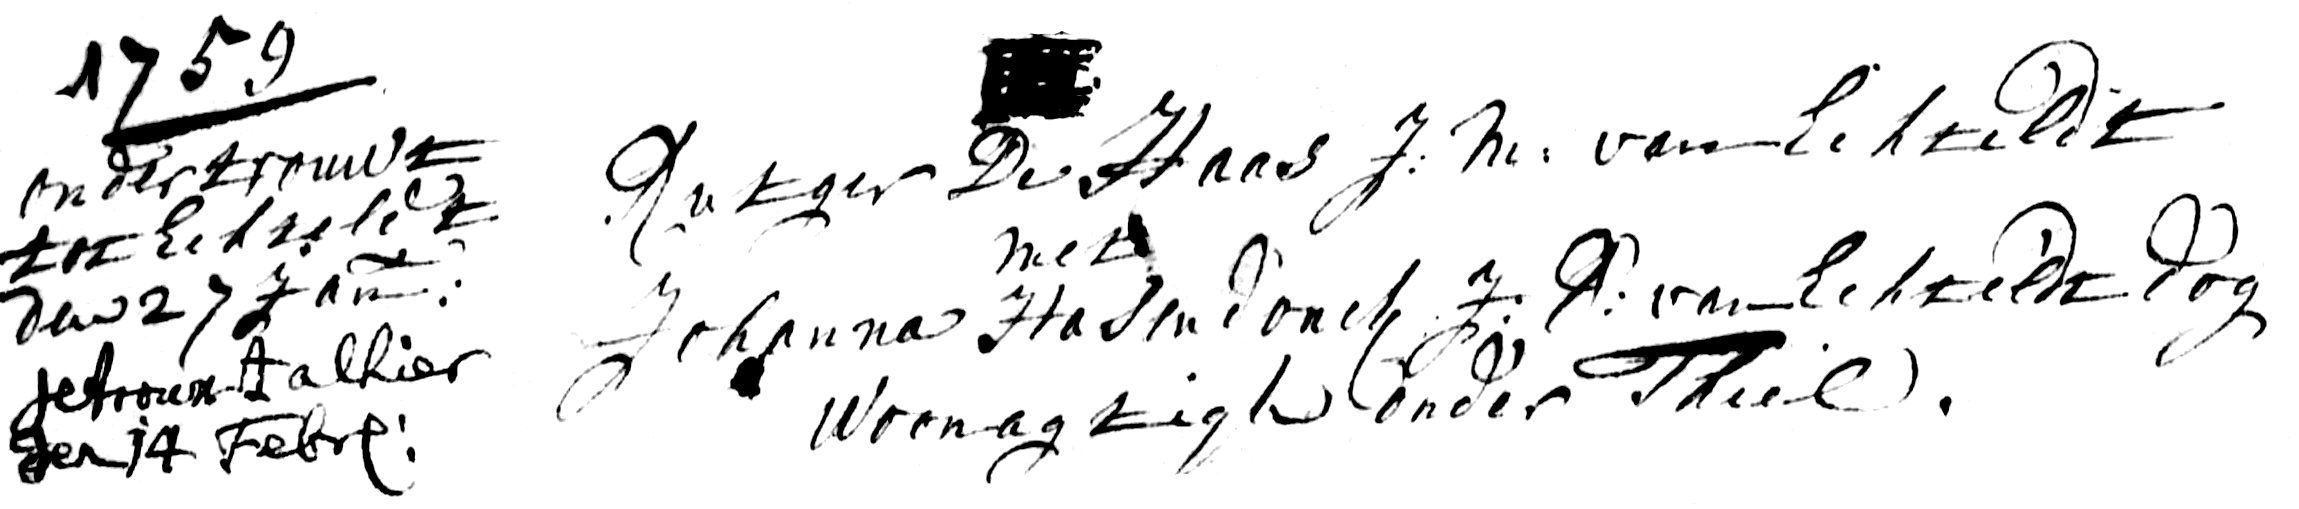 1759
ondertrouwt
tot Echteldt
den 27 Jan:
getrouwt alhier
den 14 Febr:
Rutger De Haas J. M. van Echteldt
met
Johanna Hasendonck J. D. van Echteldt dog
Woonagtigh onder Thiel.